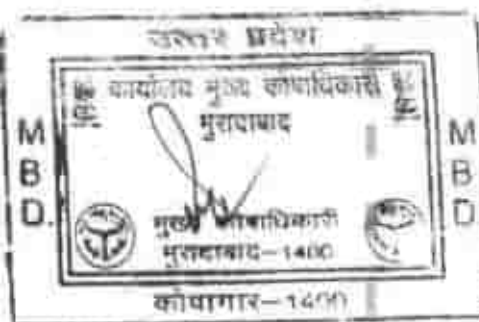 उत्तर प्रदेश
कार्यालय मुख्य कोषाधिकारी
मुरादाबाद
M B D.
M B D
मुख्य कोषाधिकारी
मुरादाबाद-1400
कोषागार-1400